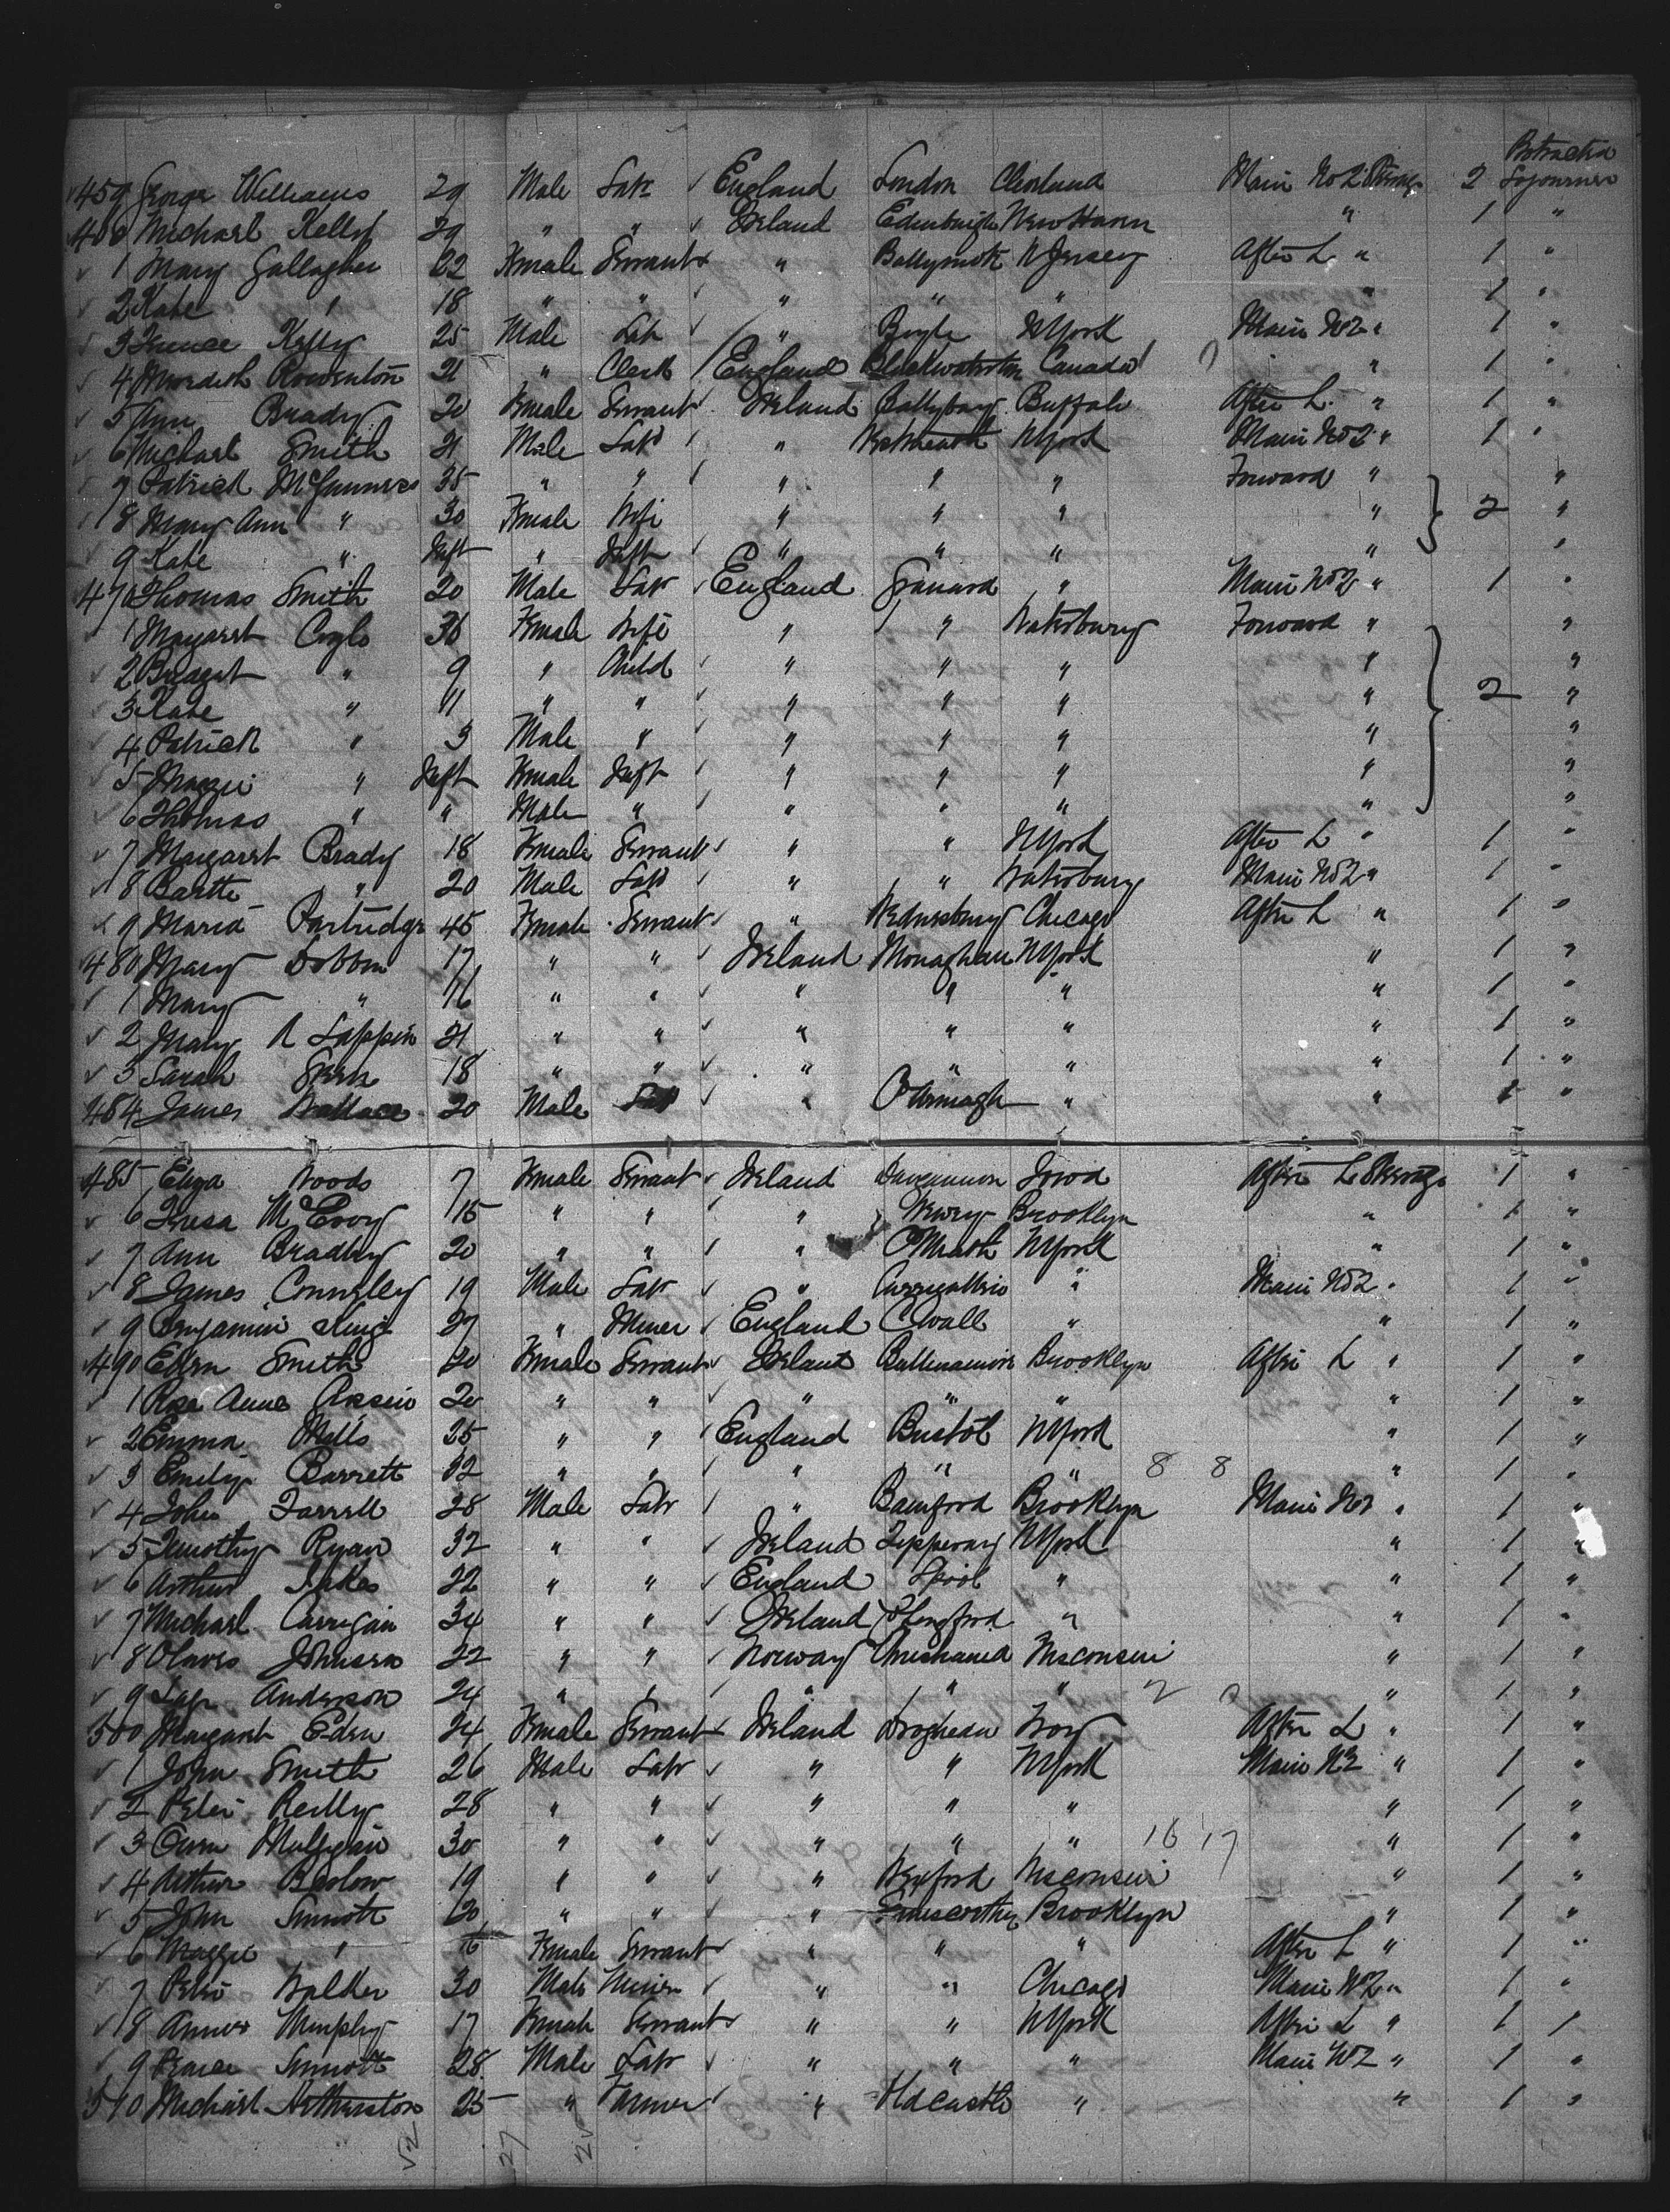 Protracted
459 George Williams 29 Male Labr England London Cleveland Main No 2 Steerage 2 Sojourner
460 Michael Kelly 29 " " Ireland Edenburgh New Haven " 1 "
1 Mary Gallagher 22 Female Servant " Ballymote N Jersey After L " 1 "
2 Kate " 18 " " " " " " 1 "
3 Kelly 25 Male Lab " Boyle N York Main No 2 " 1 "
4 21 " Clerk England Canada " 1 "
5 Ann Brady 20 Female Servant Ireland Ballybay Buffalo After L. " 1 "
6 Michael Smith 21 Male Lab " Westmeath N York Main No 2 " 1 "
7 Patrick 35 " " " " " Forward " "
8 Mary Ann " 30 Female Wife " " " " 2 "
9 Kate " Inft " Inft " " " " "
470 Thomas Smith 20 Male Lab England Granard " Main No 2 " 1 "
1 Margaret 36 Female Wife " " Waterbury Forward " "
2 Bridget " 9 " Child " " " " "
3 Kate " 11 " " " " " " 2 "
4 Patrick " 3 Male " " " " " "
5 Maggie " Inft Female Inft " " " " "
6 Thomas " " Male " " " " " "
7 Margaret Brady 18 Female Servant " " N York After L " 1 "
8 " 20 Male Lab " " Waterbury Main No 2 " 1 "
9 Maria Partridge 45 Female Servant " Wednesbury Chicago After L " 1 "
480 Mary Dobbin 17 " " Ireland Monaghan N York " 1 "
1 Mary " 16 " " " " " " 1 "
2 Mary A Lappin 21 " " " " " " 1 "
3 Sarah 18 " " " " " " 1 "
484 James Wallace 20 Male Lab " Co Armagh " " 1 "
485 Eliza Woods 7 Female Servant Ireland Dungannon Iowa After L Steerage 1 "
6 Teresa McEvoy 15 " " " Newry Brooklyn " 1 "
7 Ann Bradley 20 " " " Co Meath N York " 1 "
8 James Connelly 19 Male Lab " " Main No 2 " 1 "
9 Benjamin King 27 " Miner England C Wall " " 1 "
490 Ellen Smith 20 Female Servant Ireland Ballinamore Brooklyn After L " 1 "
1 Rose Anne 20 " " " " " " 1 "
2 Emma Mills 25 " " England Bristol N York " 1 "
3 Emily Barrett 32 " " " " " 8 8 " 1 "
4 John Farrell 28 Male Lab " Bamford Brooklyn Main No 2 " 1 "
5 Timothy Ryan 32 " " Ireland Tipperary N York " 1 "
6 Arthur 22 " " England L'pool " " 1 "
7 Michael Carrigan 34 " " Ireland Co Longford " " 1 "
8 Olaves Johnson 22 " " Norway Christiania Wisconsin " 1 "
9 Anderson 24 " " " " " 2 2 " 1 "
500 Margaret Eden 24 Female Servant Ireland Drogheda Troy After L " 1 "
1 John Smith 26 Male Lab " " N York Main No 2 " 1 "
2 Peter Reilly 28 " " " " " " 1 "
3 Owen Mulligan 30 " " " " " 16 17 " 1 "
4 Arthur Barlow 19 " " " Wexford Wisconsin " 1 "
5 John Sinnott 20 " " " Enniscorthy Brooklyn " 1 "
6 Maggie " 16 Female Servant " " " After L " 1 "
7 Peter Walker 30 Male Miner " " Chicago Main No 2 " 1 "
8 Murphy 17 Female Servant " " N York After L " 1 "
9 Pearce Sinnott 28 Male Lab " " " Main No 2 " 1 "
510 Michael Netherston 25 " Farmer " Oldcastle " " 1 "
52 27 25